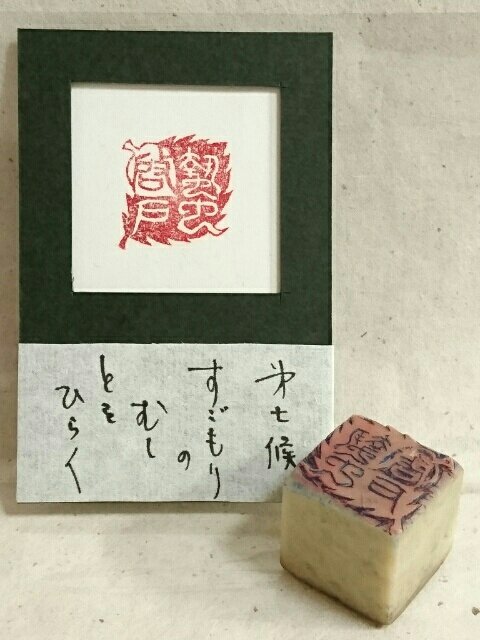 蟄虫
啓戸
第七候
すごもり
の
むし
とを
ひらく